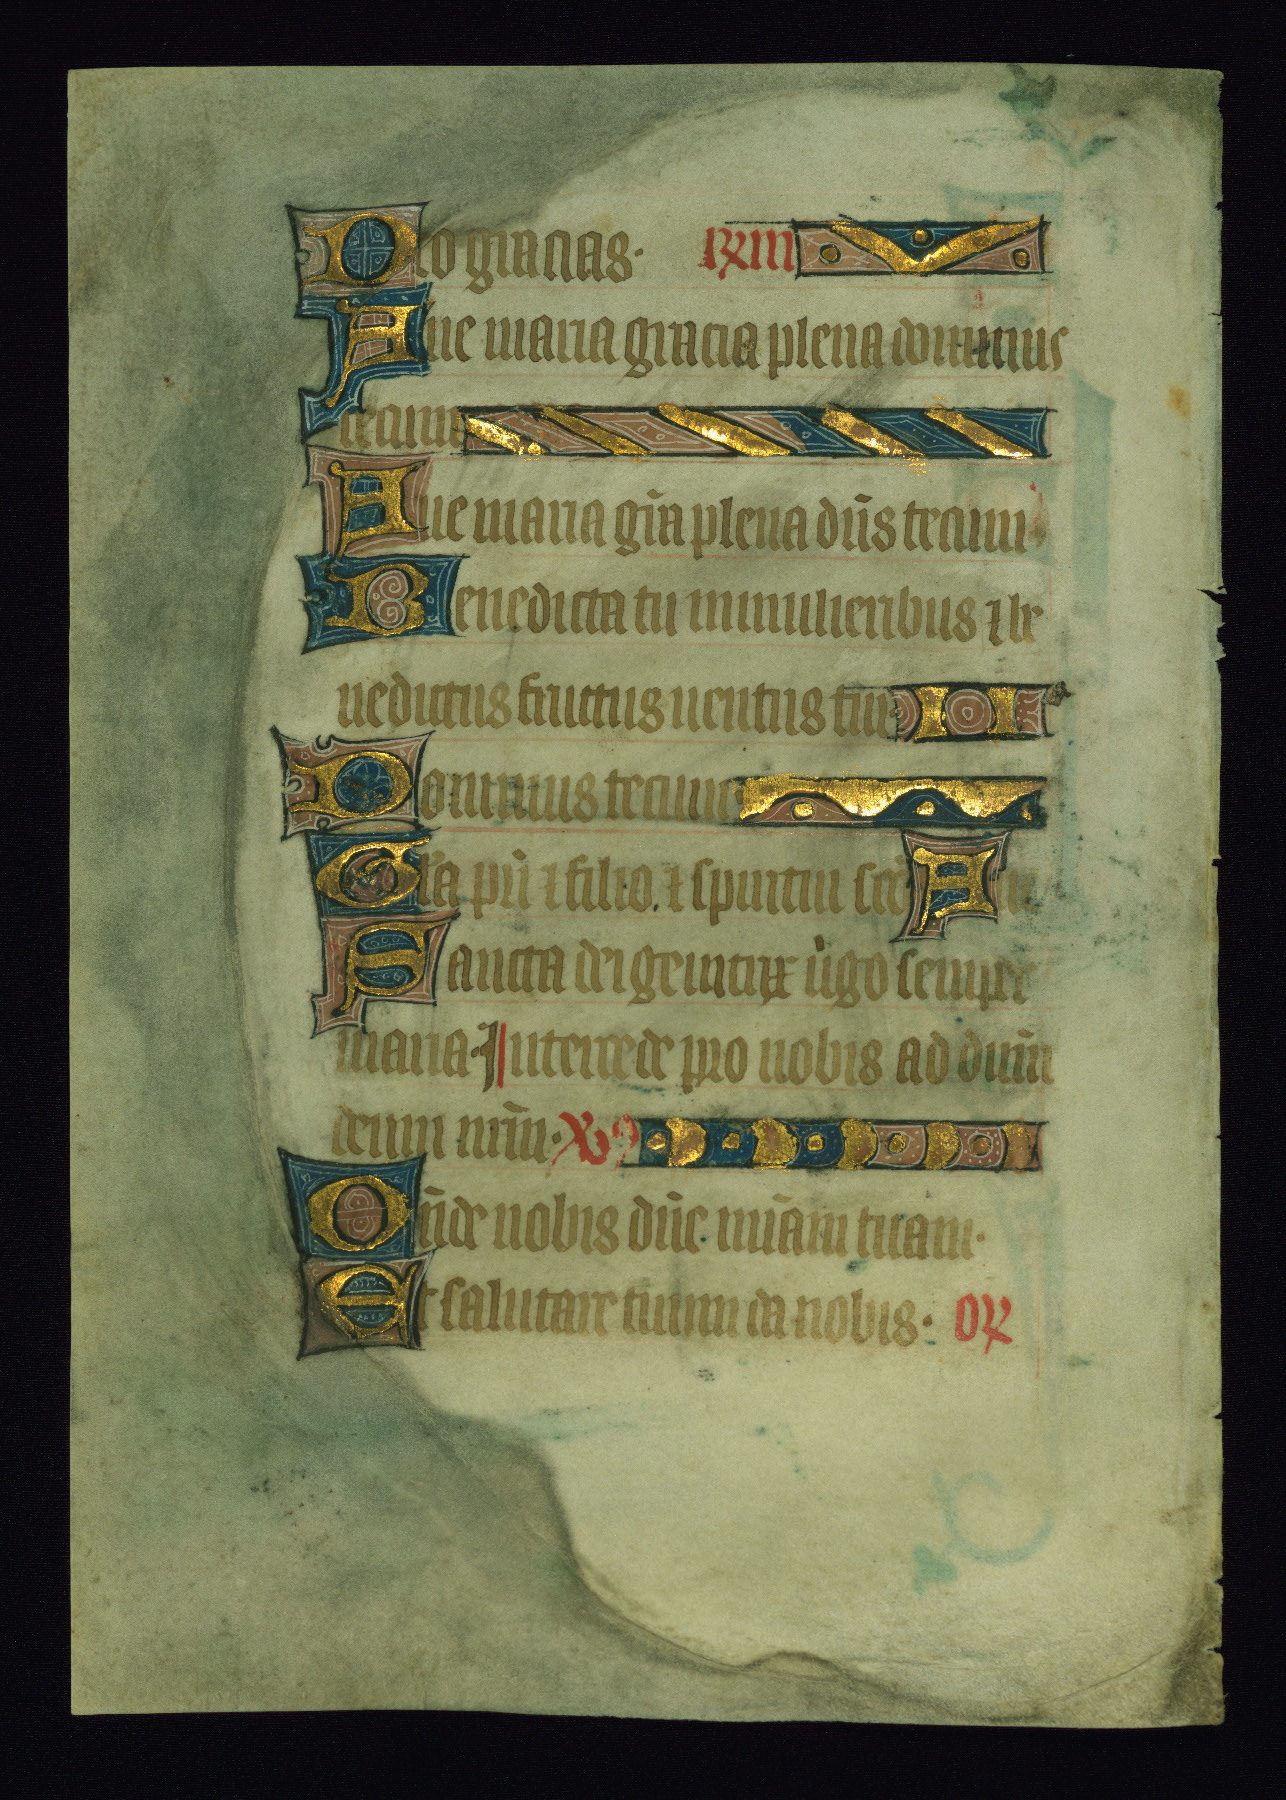 Deo gracias· 
Aue maria gracia plena dominus
tecum
Aue maria gr̄a plena dn̄s tecum
Benedicta tu in mulieribus ⁊ be
nedictus fructus uentris tui·
Dominus tecum
Gl̄a pr̄i ⁊ filio ⁊ spiritui sc̄o A
Sancta dei genitrix u̇go semper
maria· Intercede pro nobis ad dn̄m
deum nr̄m·
On̄de nobis dn̄e mīam tuam·
Et salutare tuum da nobis· or̄